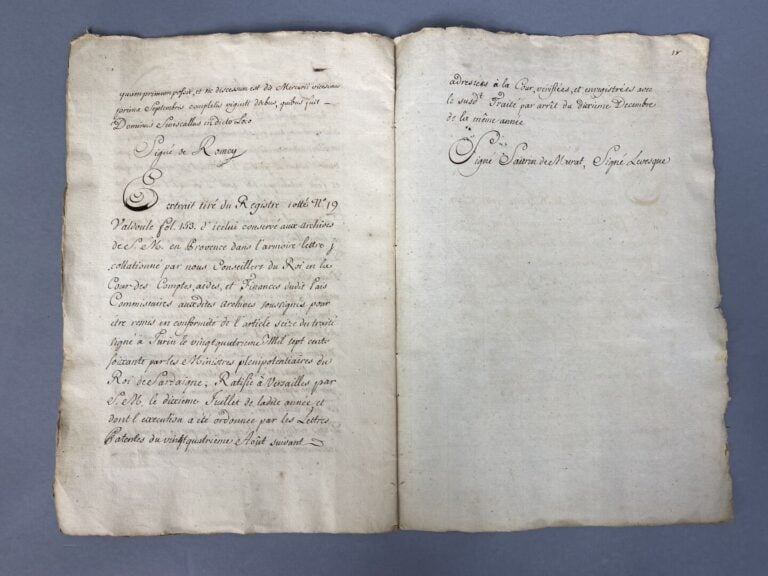 quamprimum posset, et ne discessum est die Mercurii vicesima
prima Septembris completis viginti diebus, quibus fuit
Dominus Senescallus in dicto Loco
Signé de Romey
Extrait tiré du Registre cotté N.º 19
Valdoule fol. 153. d'icelui conservé aux Archives
de S. M. en Provence dans l'armoire lettre j
collationné par nous Conseillers du Roi en la
Cour des Comptes, aides, et Finances dudit Pais
Commissaires auxdites Archives soussignés pour
être remis en conformité de l'article seize du traité
signé à Turin le vingt quatrième Mil sept cents
soixante par les Ministres plenipotentiaires du
Roi de Sardaigne; Ratifié à Versailles par
S. M. le dixieme Juillet de ladite année, et
dont l'execution a été ordonnée par les Lettres
Patentes du vingt quatrieme Août suivant
18
adressées à la Cour, verifiées, et enregistrées avec
le susd.t Traité par arrêt du dixieme Decembre
de la même année
Signé de Murat, Signé Levesque